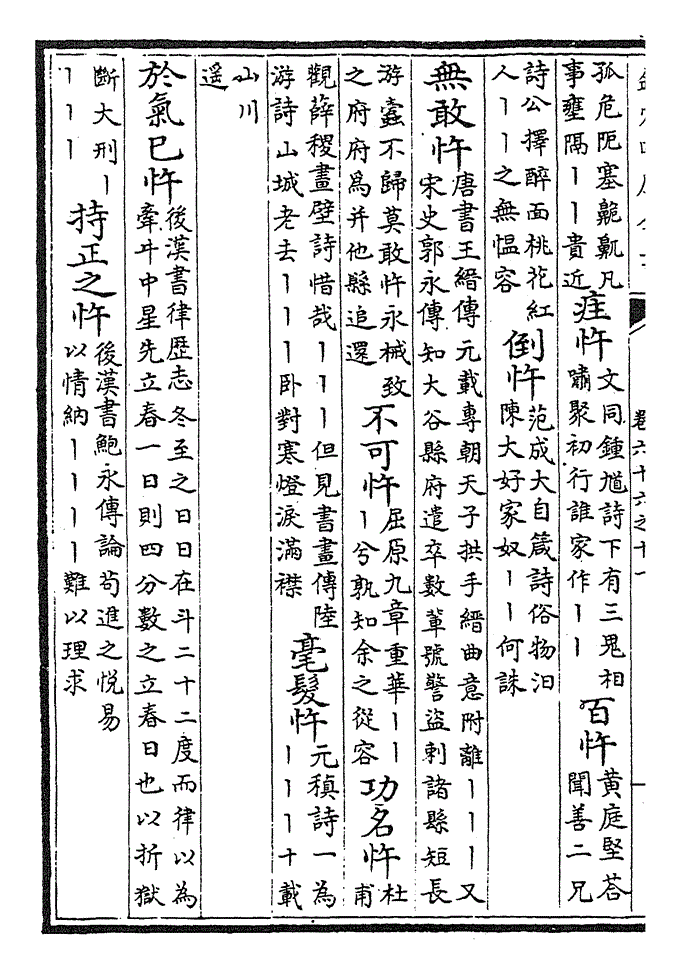 卷六十六之十一
孤危阨塞臲卼凡
事壅隔丨丨貴近
疰忤
文同鍾馗詩下有三鬼相
嘯聚初行誰家作丨丨
百忤
黄庭堅荅
聞善二兄
詩公擇醉面桃花紅
人丨丨之無愠容
倒忤
范成大自箴詩俗物汨
陳大好家奴丨丨何誅
無敢忤
唐書王縉傳元載專朝天子拱手縉曲意附離丨丨丨又
宋史郭永傳知大谷縣府遣卒數軰號警盗剌諸縣短長
游蠧不歸莫敢忤永械致
之府府爲并他縣追還
不可忤
屈原九章重華丨丨
丨兮孰知余之從容
功名忤
杜
甫
觀薛稷畫壁詩惜哉丨丨丨但見書畫傳陸
游詩山城老去丨丨丨卧對寒燈淚滿襟
毫髮忤
元稹詩一為
丨丨丨十載
山川
遥
於氣已忤
後漢書律歴志冬至之日日在斗二十二度而律以為
牽牛中星先立春一日則四分數之立春日也以折獄
斷大刑丨
丨丨丨
持正之忤
後漢書鮑永傳論苟進之悦易
以情納丨丨丨丨難以理求